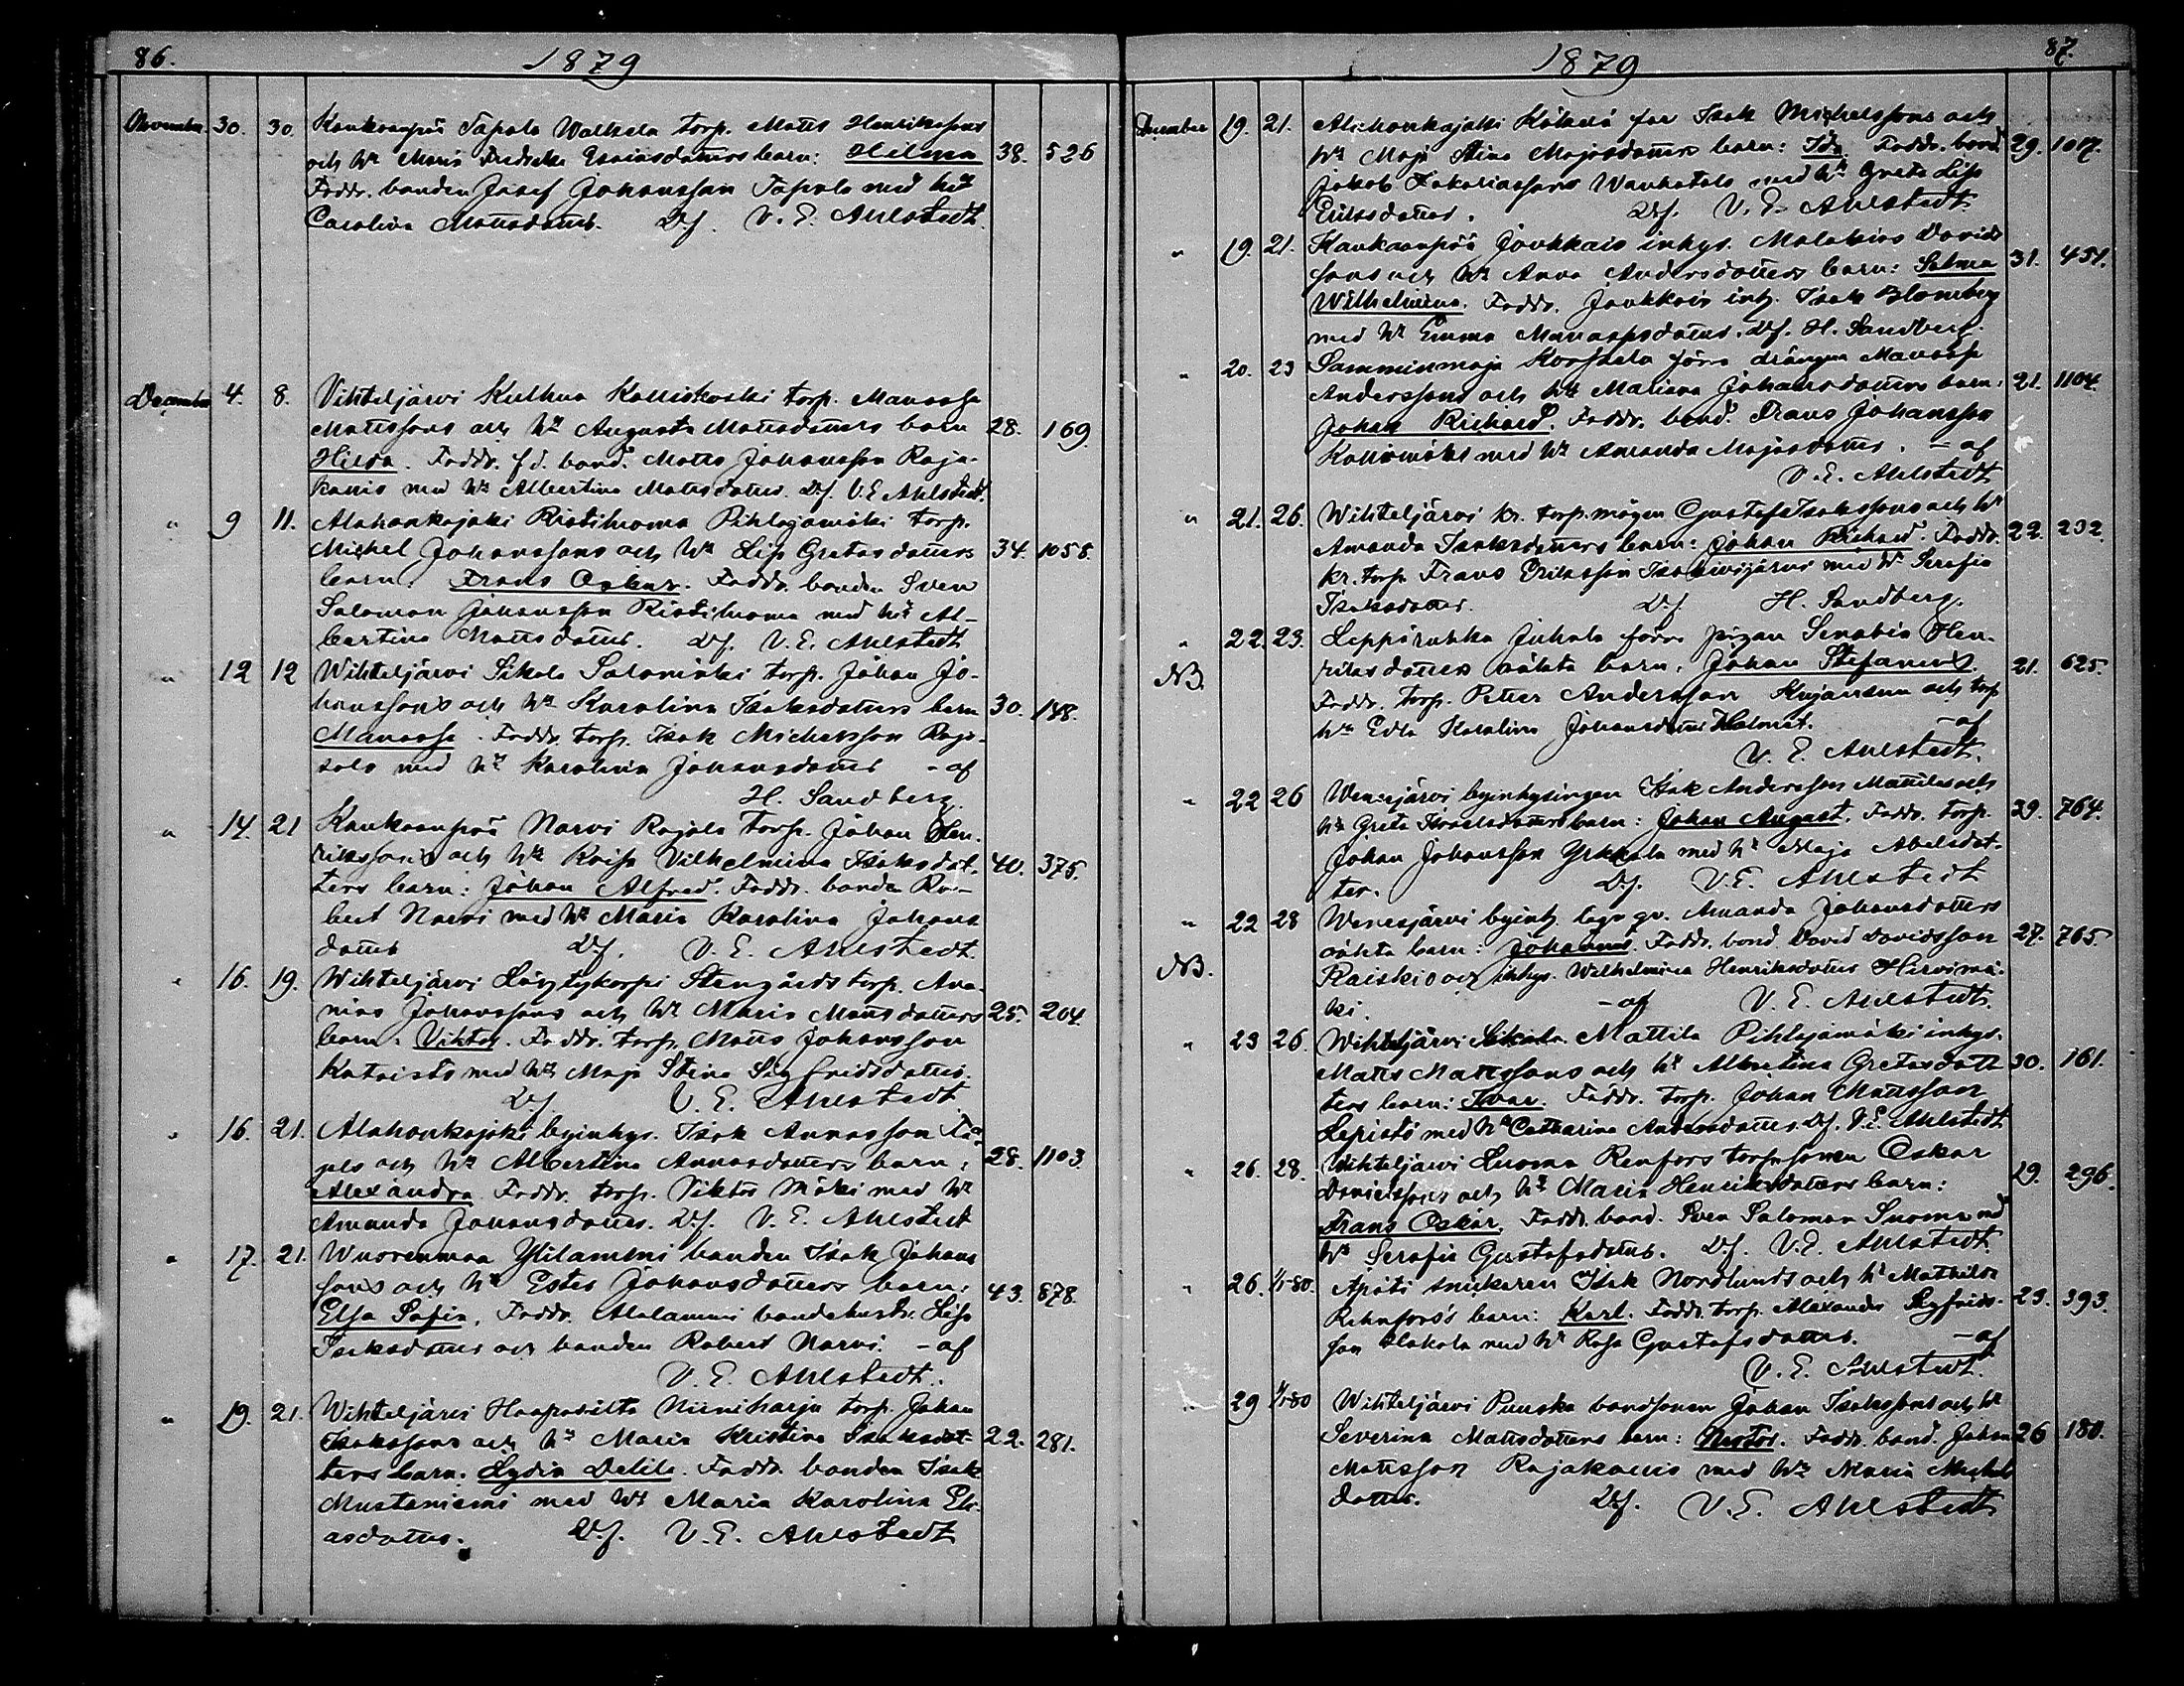 86. 1879
November 30. 30. Kankaanpää Tapala Walkela torp. Matts Henrikssons
och hu Maria Fredrika Esaiasdotters barn: Hilma 38. 526
Faddr. bonden Josef Johansson Tapala med hu
Carolina Mattsdotter. Df. V. E. Ahlstedt.
December 4. 8. Vihteljärvi Kulhua Kalliokoski torp. Manasse
Mattssons och hu Augusta Mattsdotters barn 28. 169
Hilda. Faddr. f d. bond. Matts Johansson Raja-
kanio med hu Albertina Mattsdotter. Df. V. E. Ahlstedt.
" 9 11. Alahonkajoki Ristihuoma Pihlajamäki torp.
Michel Johanssons och hu Lisa Gretasdotters 34. 1058.
barn: Frans Oskar. Faddr. bonden Sven
Salomon Johansson Ristihuoma med hu Al-
bertina Mattsdotter. Df. V. E. Ahlstedt
" 12 12 Wihteljärvi Sikala Salomäki torp. Johan Jo-
hanssons och hu Karolina Isaksdotters barn 30. 148.
Manasse. Faddr. torp. Isak Michelsson Raja-
salo med hu Karolina Johansdotter - af
H. Sandberg.
" 14. 21 Kankaanpää Narvi Rajala torp. Johan Hen-
rikssons och hu Kaisa Vilhelmina Isaksdot- 40. 375.
ters barn: Johan Alfred. Faddr. bonden Ro-
bert Narvi med hu Maria Karolina Johans
dotter Df. V. E. Ahlstedt.
" 16. 19. Wihteljärvi Löytykorpi Stengårds torp. Ana-
nias Johanssons och hu Maria Mattsdotters 25. 204.
barn: Viktor. Faddr. torp. Matts Johansson
Kataisto med hu Maja Stina Sigfridsdotter.
Df. V. E. Ahlstedt
" 16. 21. Alahonkajoki byinhys. Isak Annasson
och hu Albertina Annasdotters barn: 28. 1103.
Alexandra. Faddr. torp. Viktor Mäki med hu
Amanda Johansdotter. Df. V. E. Ahlstedt
" 17. 21. Wuorenmaa Ylilammi bonden Isak Johans
sons och hu Ester Johansdotters barn: 43. 878.
Elsa Sofia. Faddr. Alalammi bondehustr. Lisa
Isaksdotter och bonden Robert Narvi. - af
V. E. Ahlstedt.
" 19. 21. Wihteljärvi Haapasilta Niiniharju torp. Johan
Isakssons och hu Maria Kristina Isaksdot- 22. 281.
ters barn: Lydia Delila. Faddr. bonden Isak
Mustaniemi med hu Maria Karolina Eli-
asdotter. Df. V. E. Ahlstedt
1879 87.
December 19. 21. Alahonkajoki Kåkelä far Isak Michelssons och
hu Maja Stina Majasdotters barn: Ida Faddr. bond. 29. 1017.
Jakob Zakariassons Wanhatalo med hu Greta Lisa
Eriksdotter. Df. V. E. Ahlstedt.
" 19. 21. Kankaanpää Jonkkais inhys. Malakias Davids
sons och hu Anna Andersdotters barn: Selma 31. 451.
Wilhelmina. Faddr. Jonkkais inh. Isak Blomberg
med hu Emma Manassesdotter. Df. H. Sandberg.
" 20. 23 Samminmaja Korpela förra drängen Manasse
Anderssons och hu Mariana Johansdotters barn: 21. 1104.
Johan Richard. Faddr. bond. Frans Johansson
med hu Amanda Majasdotter. - af
V. E. Ahlstedt
" 21. 26. Wihteljärvi kr. torp. mågen Gustaf Isakssons och hu
Amanda Isaksdotters barn: Johan Richard. Faddr. 22. 232.
kr. torp. Frans Eriksson med hu Serafia
Isaksdotter. Df. H. Sandberg.
" 22. 23. Leppäruhka Juhala förra pigan Serabia Hen-
NB. riksdotters oäkta barn: Johan Stefanus. 21. 625.
Faddr. torp. Petter Andersson Kujansuu och torp
hu Edla Karolina Johansdotter Holmet. - af
V. E. Ahlstedt.
" 22 26 Wenesjärvi byinhysingen Isak Andersson Mattilas och
hu Greta Israelsdotters barn: Johan August. Faddr. torp. 39. 764.
Johan Johansson Yrkkola med hu Maja Abelsdot-
ter. Df. V. E. Ahlstedt
" 22 28 Wenesjärvi byinh. lagv. gv. Amanda Johansdotters
oäkta barn: Johannes. Faddr. bond. David Davidsson 27. 765.
NB. Raiskio och inhys. Wilhelmina Henriksdotter Hirvimä-
ki. - af V. E. Ahlstedt.
" 23 26 Wihteljärvi Sikala Mattila Pihlajamäki inhys.
Matts Mattssons och hu Albertina Gretasdott 30. 161.
ters barn: Ivar. Faddr. torp. Johan Mattsson
Lepistö med hu Catharina Andersdotter. Df. V. E. Ahlstedt
" 26. 28. Wihteljärvi Luoma Renfors torpsonen Oskar
Danielssons och hu Maria Henriksdotters barn: 29. 296.
Frans Oskar. Faddr. bond. Sven Salomon Luoma md
hu Serafia Gustafsdotter. Df. V. E. Ahlstedt.
" 26. 1/1-80. Apäti snickaren Isak Nordlunds och hu Mathilda
Rehnfors's barn: Karl. Faddr. torp. Alexander Sigfrids- 23. 393.
son Hakala med hu Rosa Gustafsdotter. - af
V. E. Ahlstedt.
" 29 1/1-80 Wihteljärvi Punska bondsonen Johan Isakssons och hu
Severina Mattsdotters barn: Nestor. Faddr. bond. Johan 26 180.
Mattsson Rajakanio med hu Maria Michels
dotter. Df. V. E. Ahlstedt